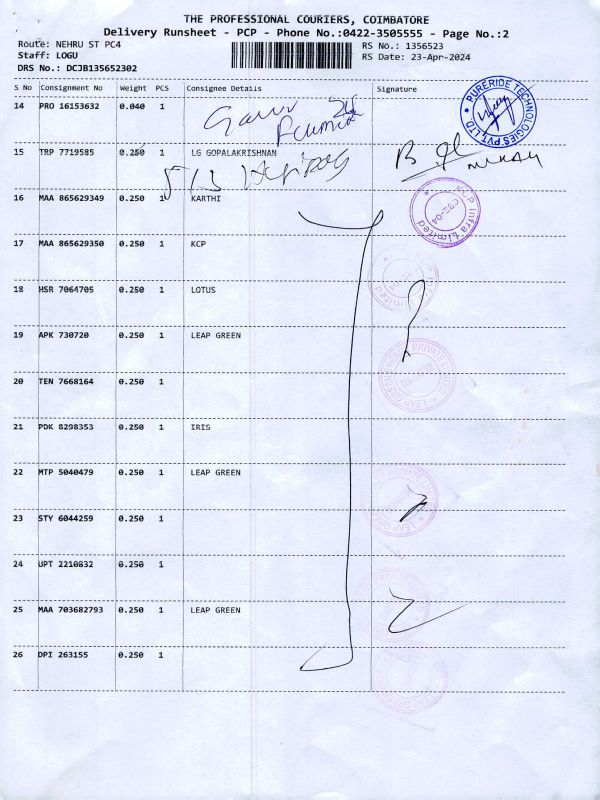 THE PROFESSIONAL COURIERS, COIMBATORE
Delivery Runsheet - PCP - Phone No.:0422-3505555 - Page No.:2
Route: NEHRU ST PC4
RS No.: 1356523
Staff: LOGU
RS Date: 23-Apr-2024
DRS No.: DCJB135652302
S No Consignment No Weight PCS Consignee Details Signature
14 PRO 16153632 0.040 1
PURERIDE TECHNOLOGIES PVT LTD.
15 TRP 7719585 0.250 1 LG GOPALAKRISHNAN
16 MAA 865629349 0.250 1 KARTHI
KCP Infra Limited
CBE-04
17 MAA 865629350 0.250 1 KCP
18 HSR 7064705 0.250 1 LOTUS
19 APK 730720 0.250 1 LEAP GREEN
PRIVATE LIMITED
20 TEN 7668164 0.250 1
21 PDK 8298353 0.250 1 IRIS
22 MTP 5040479 0.250 1 LEAP GREEN
23 STY 6044259 0.250 1
24 UPT 2210832 0.250 1
25 MAA 703682793 0.250 1 LEAP GREEN
26 DPI 263155 0.250 1